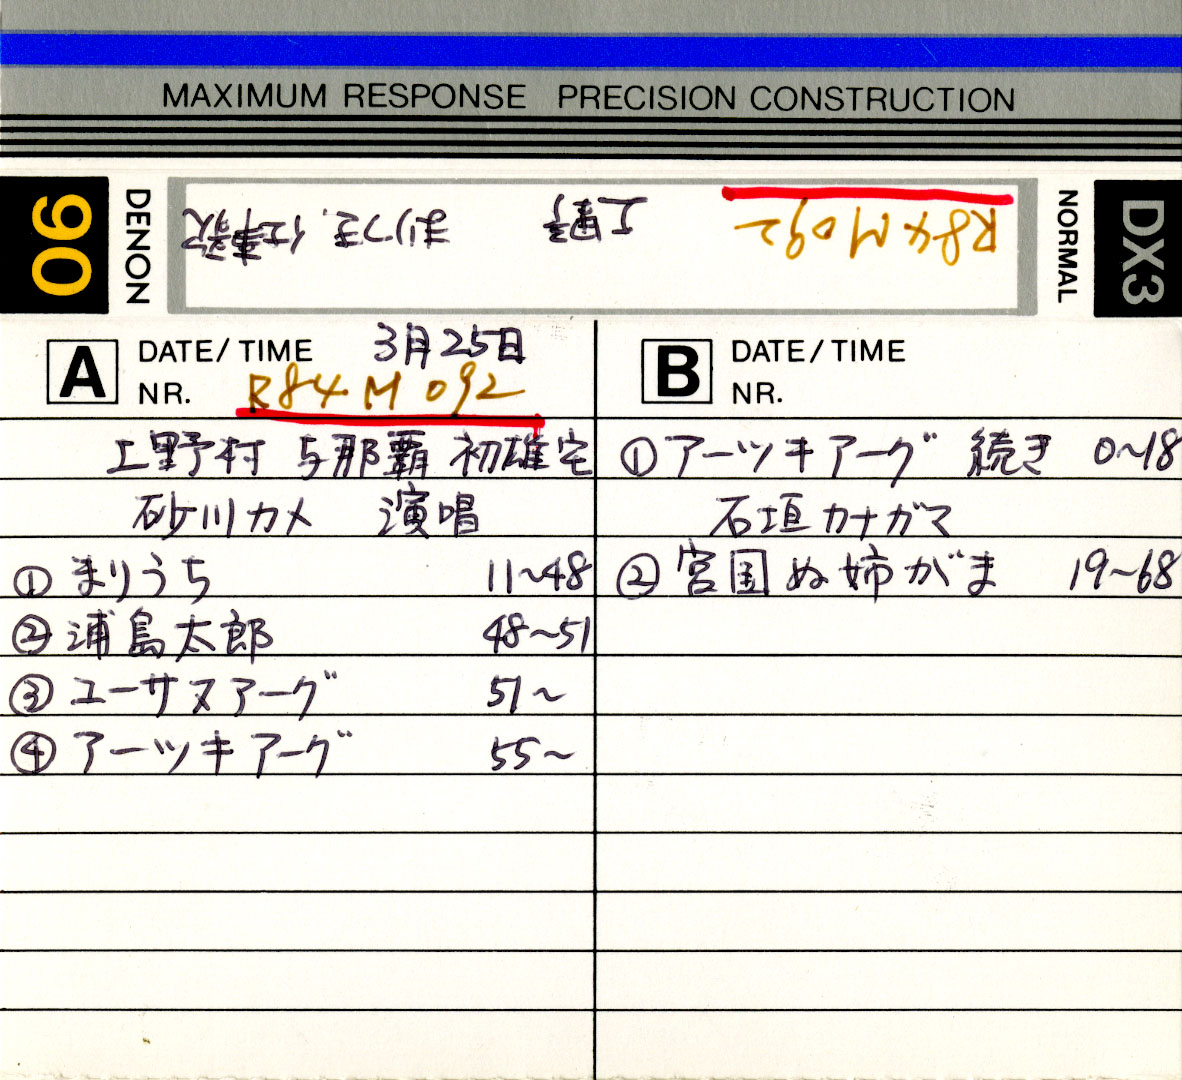 MAXIMUM RESPONSE PRECISION CONSTRUCTION
90
DENON
R84M092 上野 まりつき、仕事歌
NORMAL
DX3
A DATE/TIME 3月25日
NR. R84M092
上野村 与那覇 初雄宅
砂川カメ 演唱
① まりうち 11~48
② 浦島太郎 48~51
③ ユーサヌアーグ 51~
④ アーツキアーグ 55~
B DATE/TIME
NR.
① アーツキアーグ 続き 0~18
石垣カナガマ
② 宮国ぬ姉がま 19~68